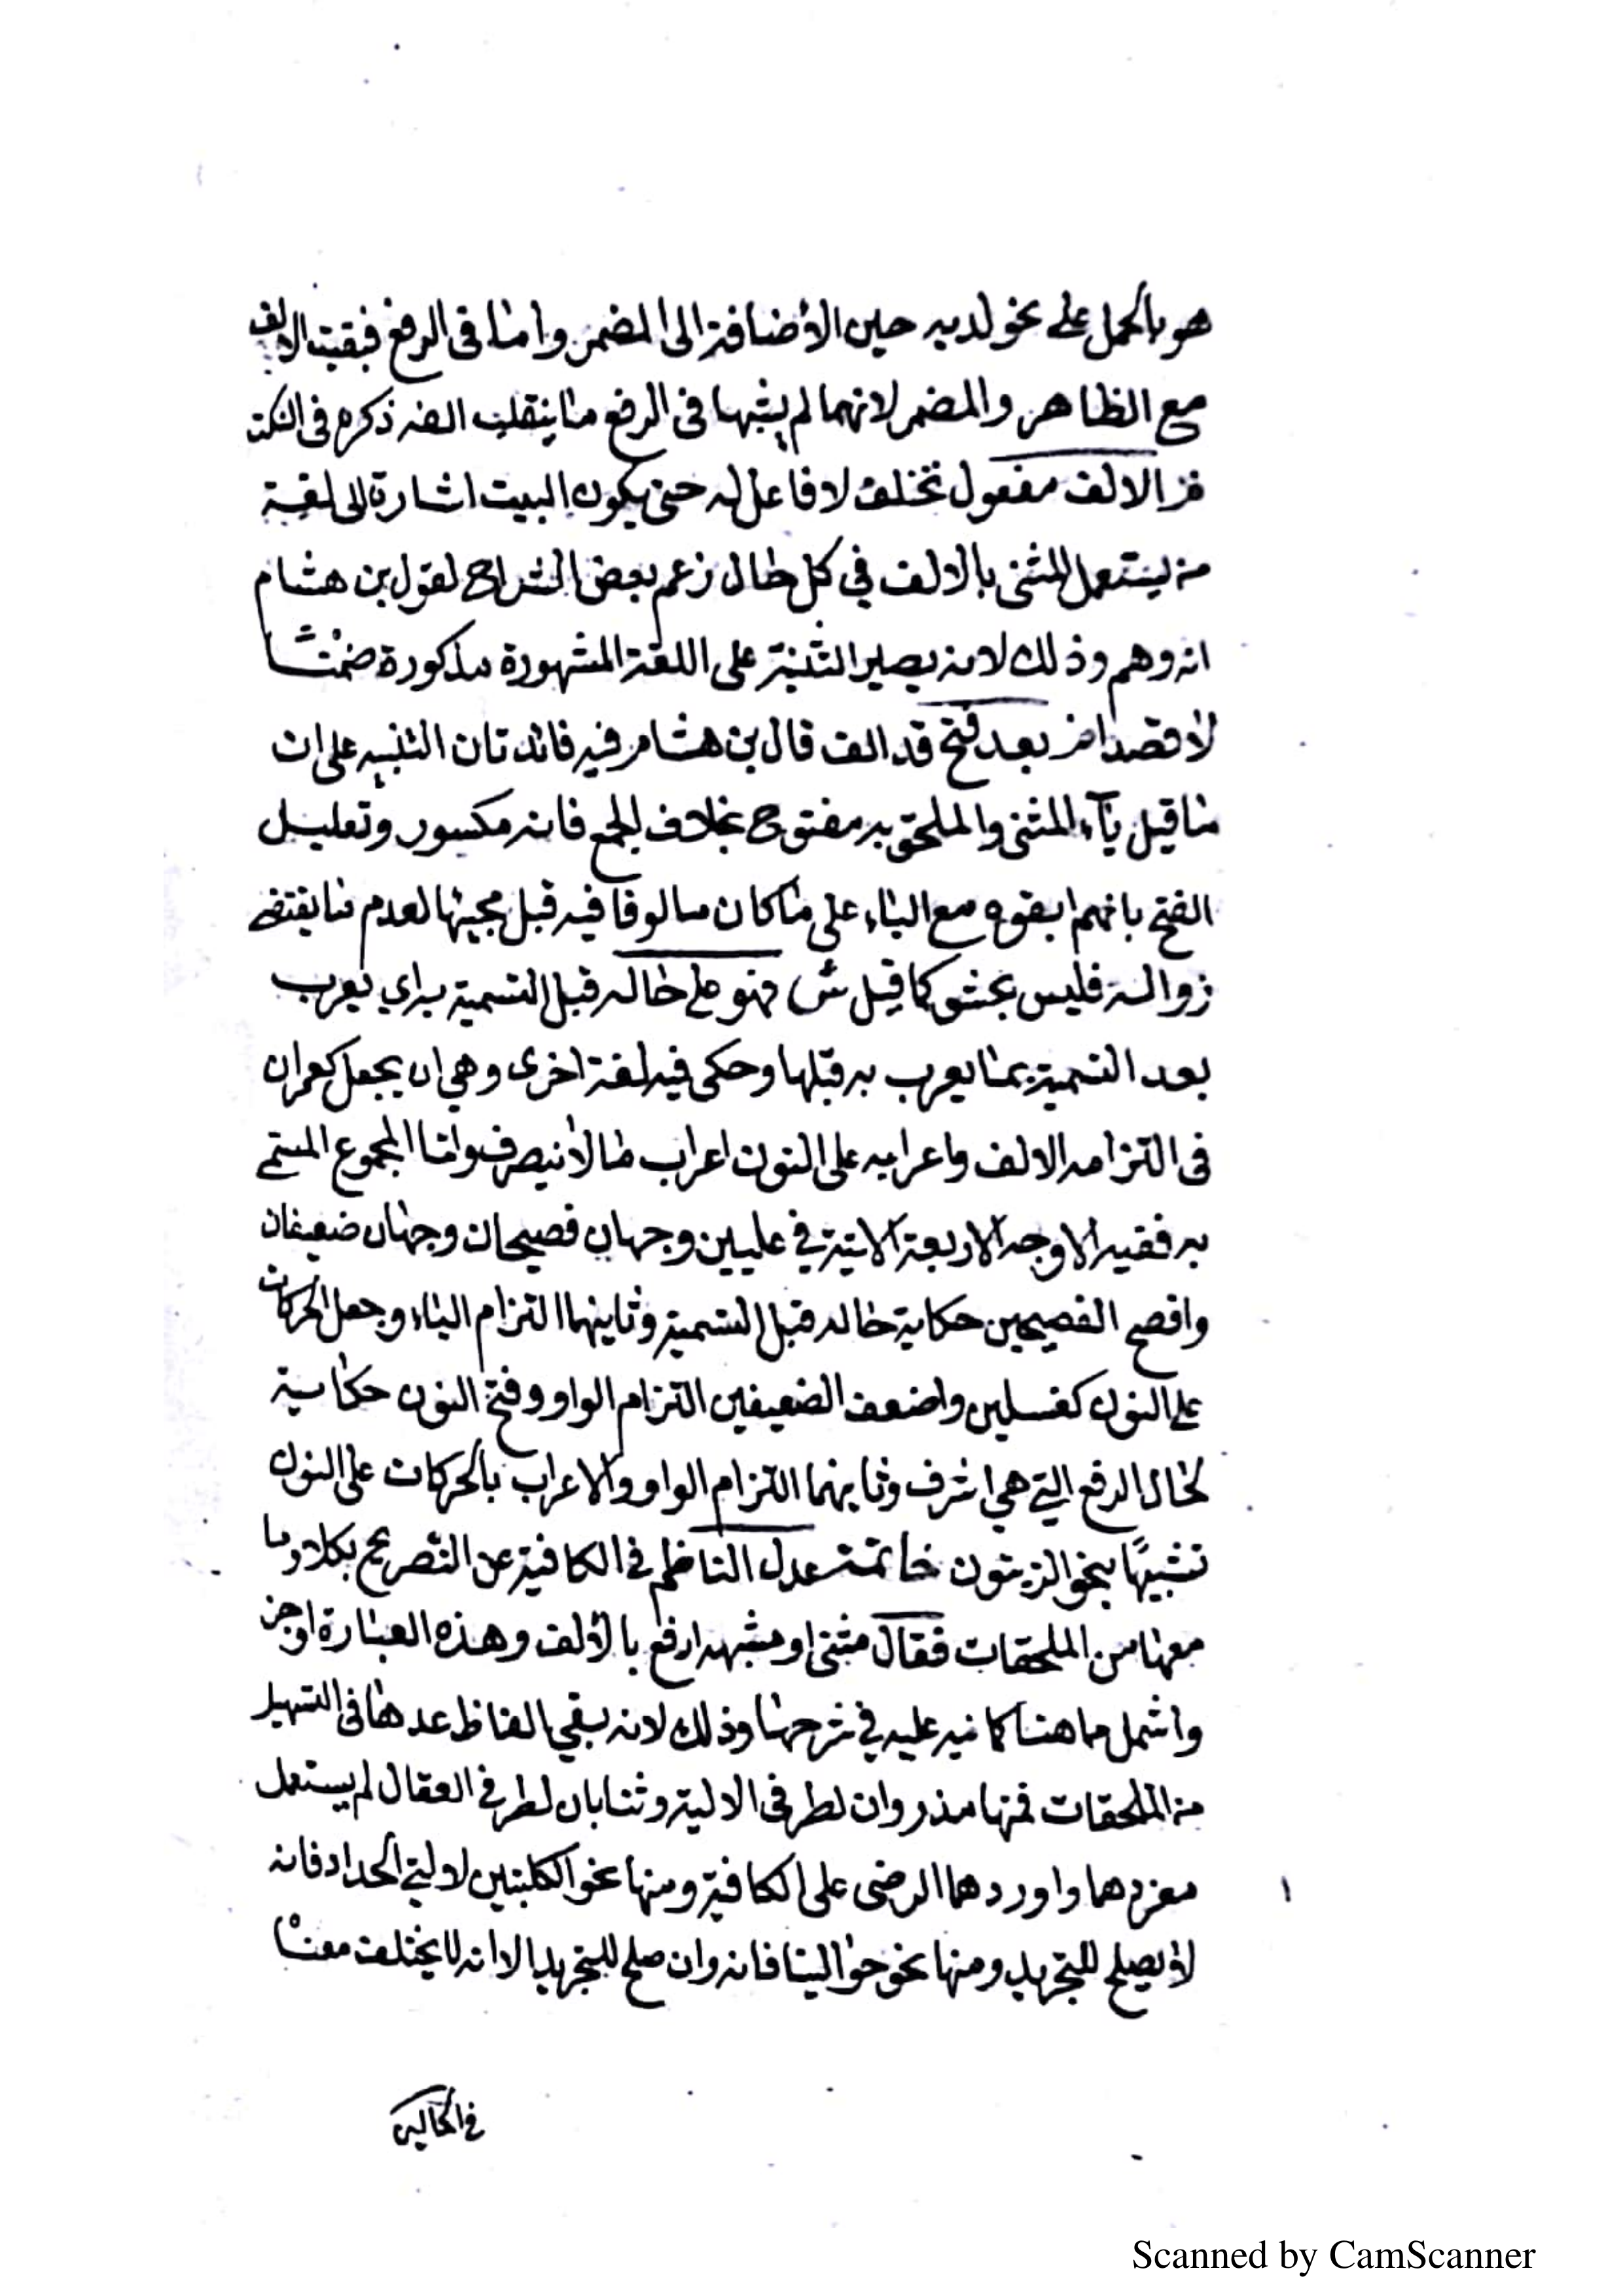 هو بالحمل على نحو لديه حين الأضافة الى المضمر واما فى الرفع فبقيت الالف
مع الظاهر والمضمر لانهما لم يشبها فى الرفع ما ينقلب الفه ذكره فى النكت
الالف مفعول تخلف لا فاعل له حتى يكون البيت اشارة الى لغة
من يستعمل المثنى بالالف في كل حال زعم بعض الشراح لقول بن هشام
انه وهم وذلك لانه يصير التثنية على اللغة المشهورة مذكورة ضمنًا
لا قصدا بعد فتح قد الف قال بن هشام فيه فائدتان التنبيه على ان
ما قبل يآء المثنى والملحق به مفتوح بخلاف الجمع فانه مكسور وتعليل
الفتح بانهم ابقوه مع الياء على ما كان مالوفا فيه قبل مجيئها لعدم ما يقتضى
زواله فليس بحشو كما قيل ش فهو على حاله قبل التسمية به اي يعرب
بعد التسمية بما يعرب به قبلها وحكى فيه لغة اخرى وهي ان يجعل كعمران
فى التزامه الالف واعرابه على النون اعراب ما لا ينصرف واما المجموع المسمى
به ففيه الاوجه الاربعة الاتية في عليين وجهان فصيحان وجهان ضعيفان
وافصح الفصيحين حكاية حاله قبل التسمية وثانيهما التزام الياء وجعل الحركات
على النون كغسلين واضعف الضعيفين التزام الواو وفتح النون حكاية
لحال الرفع التي هي اشرف وثانيهما التزام الواو والاعراب بالحركات على النون
تشبيهًا بنحو الزيتون خاتمة عدل الناظم في الكافية عن التصريح بكلا وما
معها من الملحقات فقال مثنى او مشبهه ارفع بالألف وهذه العبارة اوجز
واشمل مما هنا كما نبه عليه في شرحها وذلك لانه بقي الفاظ عدها فى التسهيل
من الملحقات فمنها مذروان لطرفى الالية وثنايان لطرفي العقال لم يستعمل
مفردهما واوردهما الرضى على الكافية ومنها نحو الكلبتين لالة الحداد فانه
لا يصلح للتجريد ومنها نحو حوالينا فانه وان صلح للتجريد الا انه لا يختلف معناه
في الحالين
Scanned by CamScanner